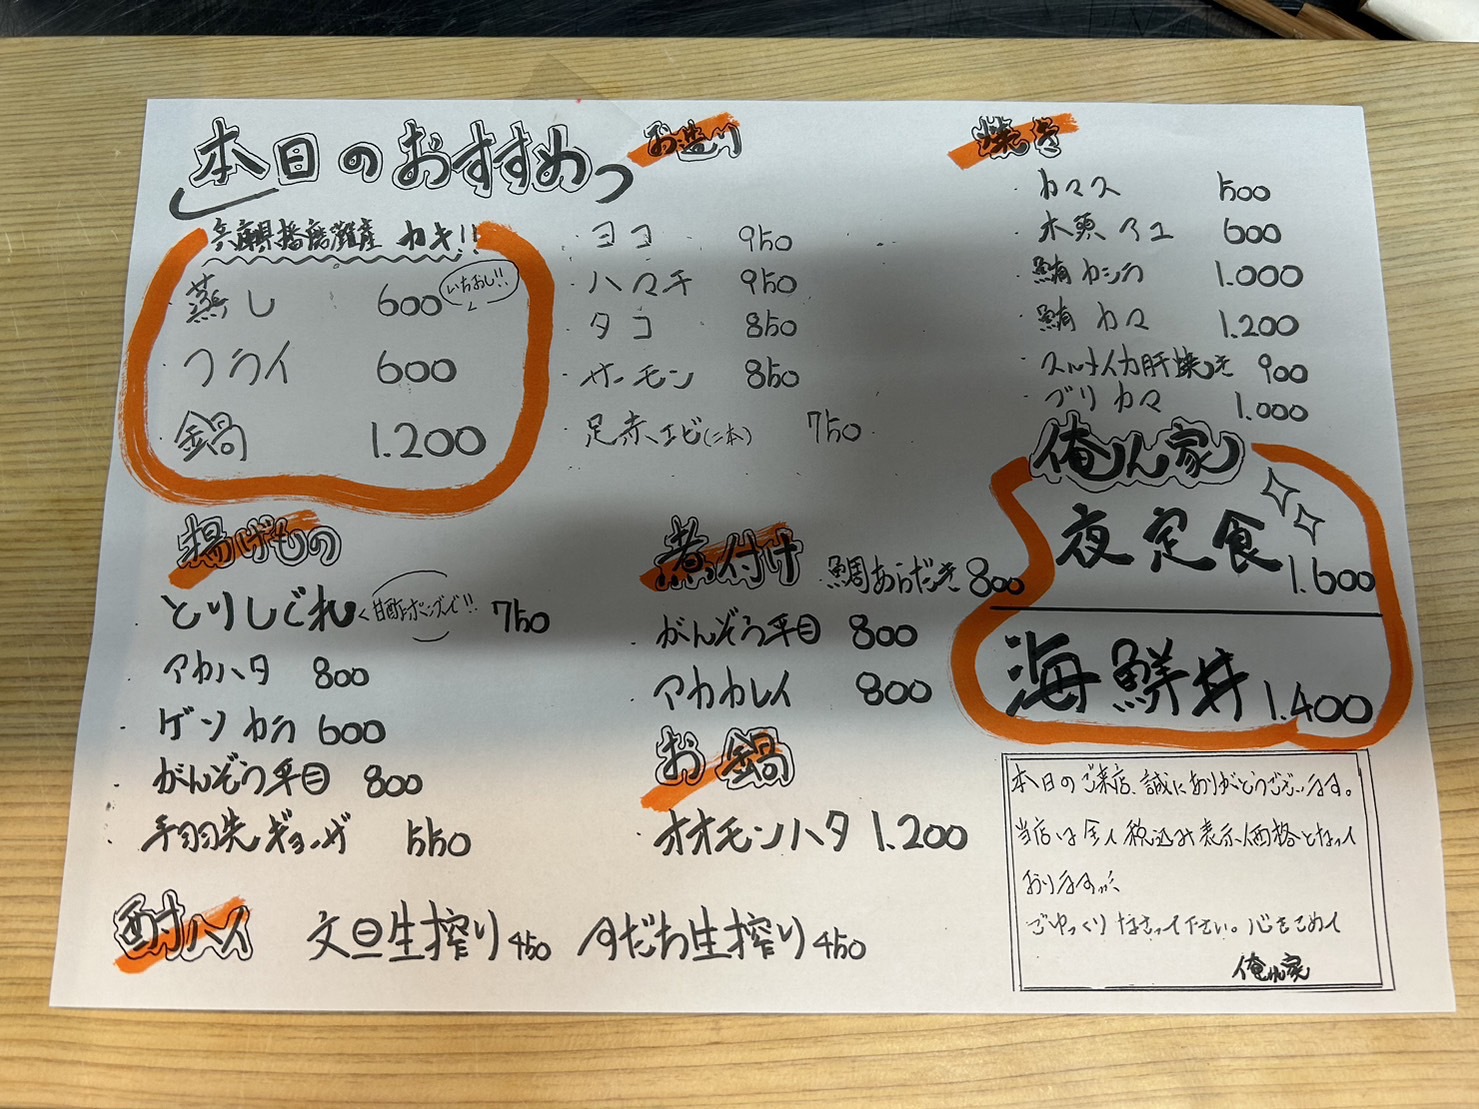 本日のおすすめ
兵庫県播磨灘産 カキ!!
蒸し 600 いちおし!!
フライ 600
鍋 1.200
お造り
・ヨコ 950
・ハマチ 950
・タコ 850
・サーモン 850
・足赤エビ(二本) 750
焼き
・カマス 500
・木頭アユ 600
・鮪カシラ 1.000
・鮪カマ 1.200
・スルメイカ肝焼き 900
・ブリカマ 1.000
俺ん家
夜定食 1.600
海鮮丼 1.400
揚げもの
・とりしぐれ 甘酢ポンズで!! 750
・アカハタ 800
・ゲソカラ 600
・がんぞう平目 800
・手羽先ギョーザ 550
煮付け
・鯛あらだき 800
・がんぞう平目 800
・アカカレイ 800
お鍋
・オオモンハタ 1.200
酎ハイ
文旦生搾り 450 すだち生搾り 450
本日のご来店、誠にありがとうございます。
当店は全て税込み表示価格となって
おりますが、
ごゆっくりなさって下さい。心をこめて
俺ん家